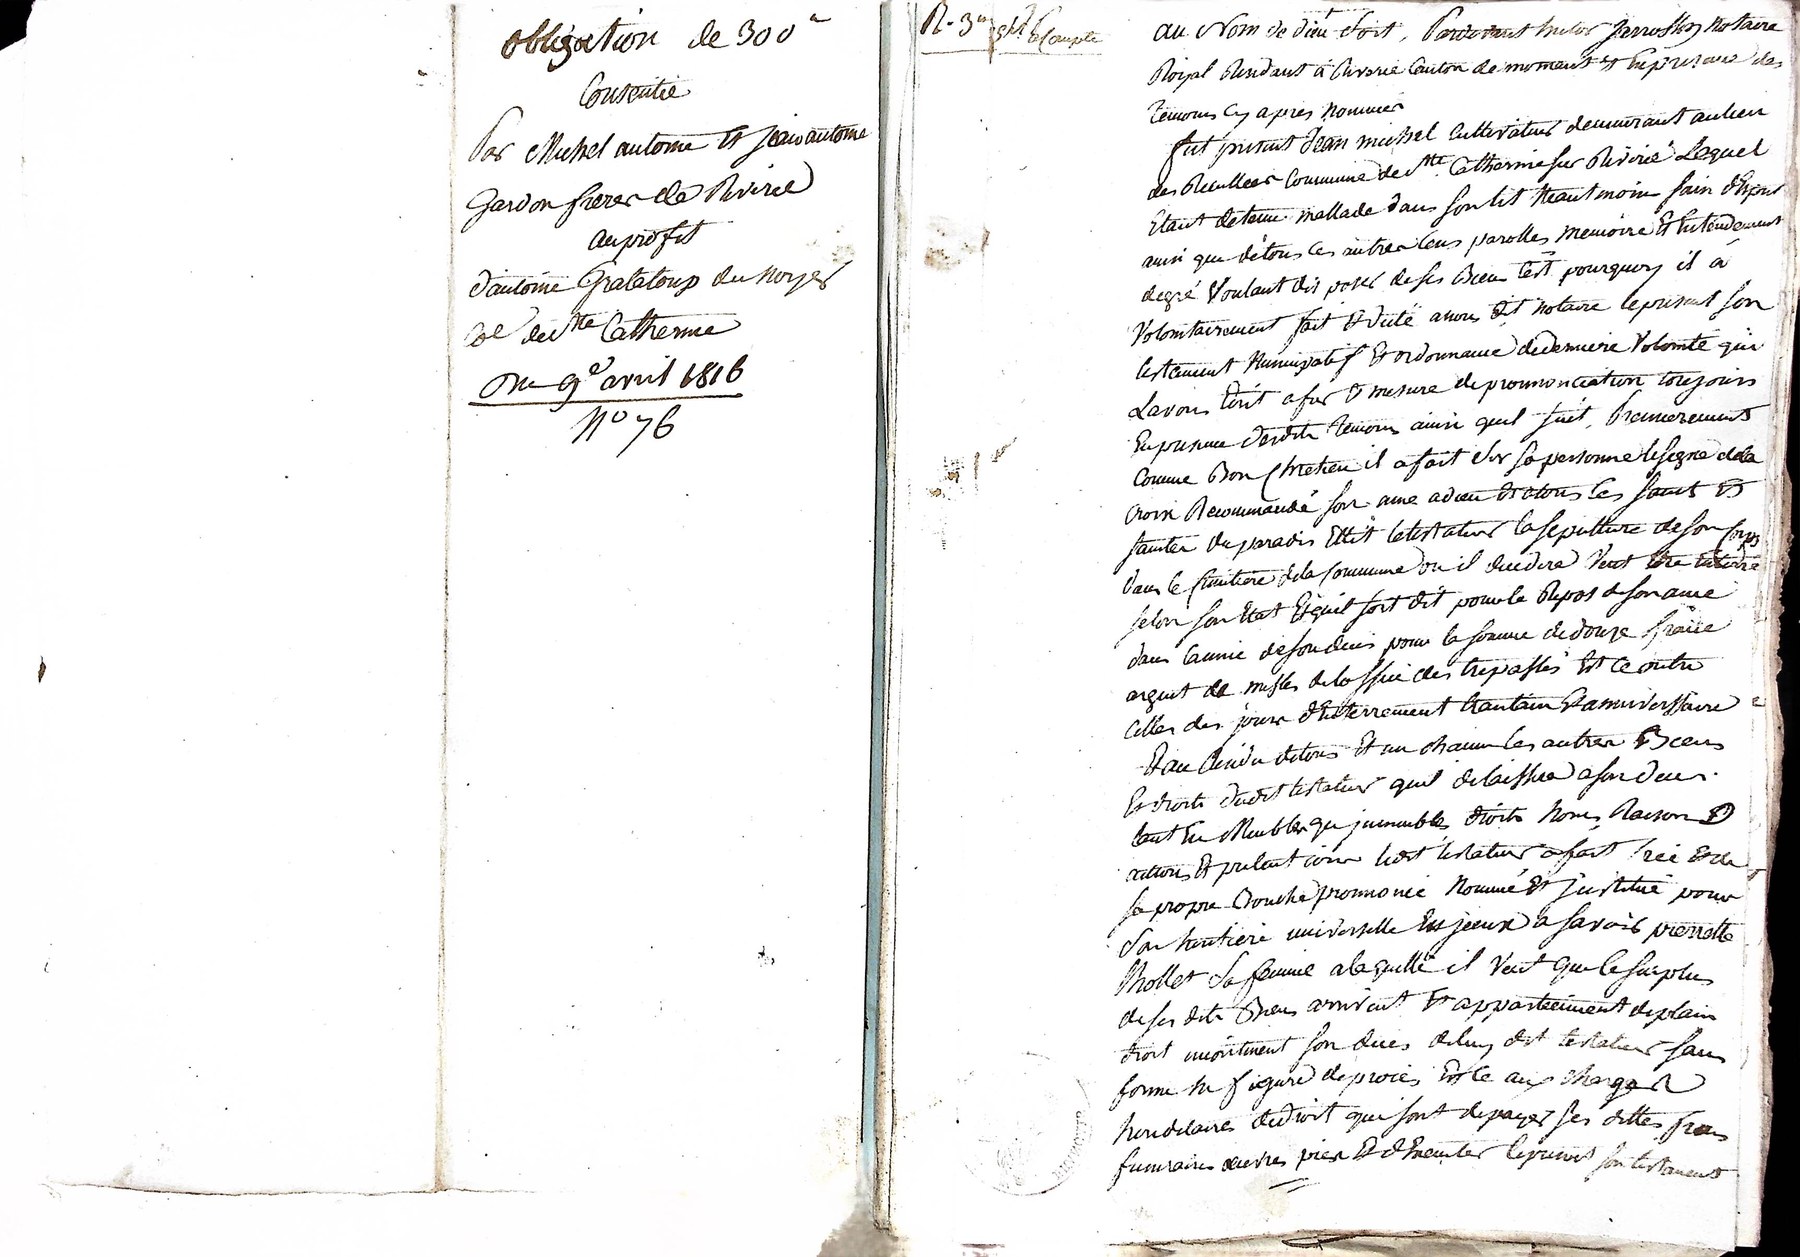 obligation de 300#
Consentie
Par Michel antoine Et jean antoine
Gardon freres de Riverie
au profit
d'antoine Grataloup du Noyer
de Ste Catherine
Du 9e avril 1816
No 76
R. 3
au Nom de dieu soit, Pardevant notaire
Royal Residant à Riverie Canton de mornant Et En presence des
temoins Cy apres Nommés
fut present Jean michel Cultivateur demeurant au lieu
des Commune de Ste Catherine sur Riverie Lequel
Etant detenu mallade dans son lit Neantmoin sain d'Esprit
ainsi que de tous ces autres sens parolles memoire Et Entendement
degré Voulant dis poser de ses Biens C'est pourquoy il à
Volontairement fait Et dicté a nous dit notaire le present son
testament Nuncupatif Et ordonnance de derniere Volonté que
Lavons Ecrit a fur Et mesure de prononciation toujours
En presence desdits temoins ainsi quil suit, Premierement
Comme Bon Chretien il a fait sur sa personne le signe de la
Croix Recommandé son ame a dieu Et a tous les saints Et
saintes du paradis Ellit le testateur la sepulture de son Corps
dans le Cimetiere de la Commune ou il decedera Veut être Enterré
selon son Etat Et quil soit dit pour le Repos de son ame
dans l'année de son deces pour la somme de douze francs
argent de messes de loffice des trepassés Et Ce outre
Celles des jours d'Enterrement trantain Et anniverssaire
Et au Residu de tous Et un chacun les autres Biens
Et droits dudit testateur quil delaissera a son deces
tant En Meubles que jmmeubles droits Noms Raisons Et
actions Et pretentions ledit testateur a fait Et de
sa propre Bouche prononcé Nommé Et jnstitué pour
son heritiere universelle a savoir pierrette
Thollet sa femme a laquelle il Veut que le surplus
de ses dits Biens arrivent Et appartiennent de plain
droit incontinent son deces de luy dit testateur sans
forme ni figure de procés Et Ce aux charges
hereditaires de droit qui sont de payer ses dettes frais
funeraires œuvres pies Et d'Executer le present son testament